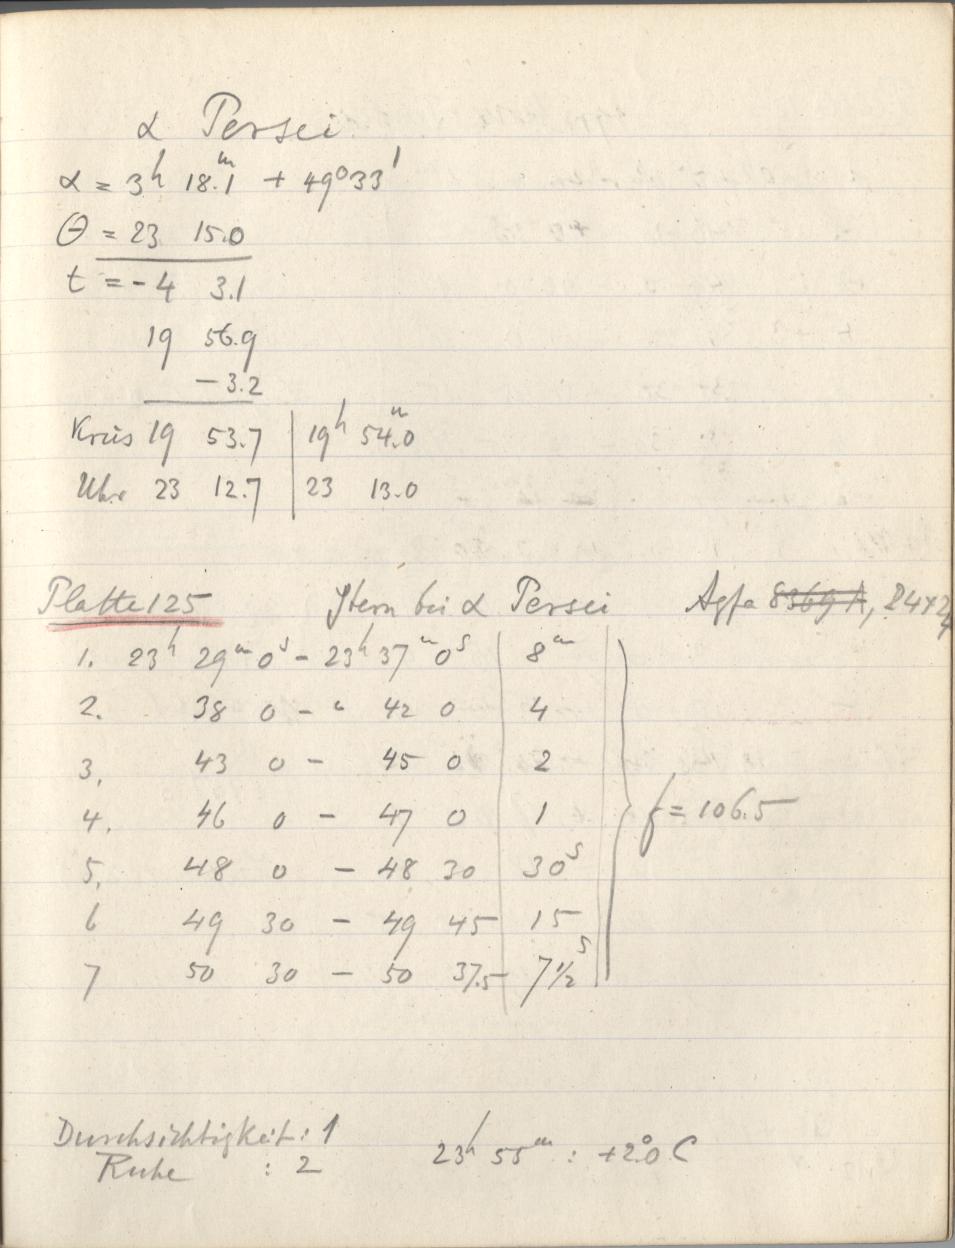 α Persei
α = 3h 18.m1 + 49°33'
θ = 23 15.0
t = - 4 3.1
19 56.9
- 3.2
Krüs 19 53.7 | 19h 54.m0
Uhr 23 12.7 | 23 13.0
Platte 125 Stern bei α Persei Agfa 8369 A,
1. 23h 29m 0s - 23h 37m 0s 8m
2. 38 0 - " 42 0 4
3. 43 0 - 45 0 2
4. 46 0 - 47 0 1
5. 48 0 - 48 30 30s
6 49 30 - 49 45 15
7 50 30 - 50 37.5 7½s
f = 106.5
Durchsichtigkeit : 1
Ruhe : 2 23h 55m : +2°.0 C